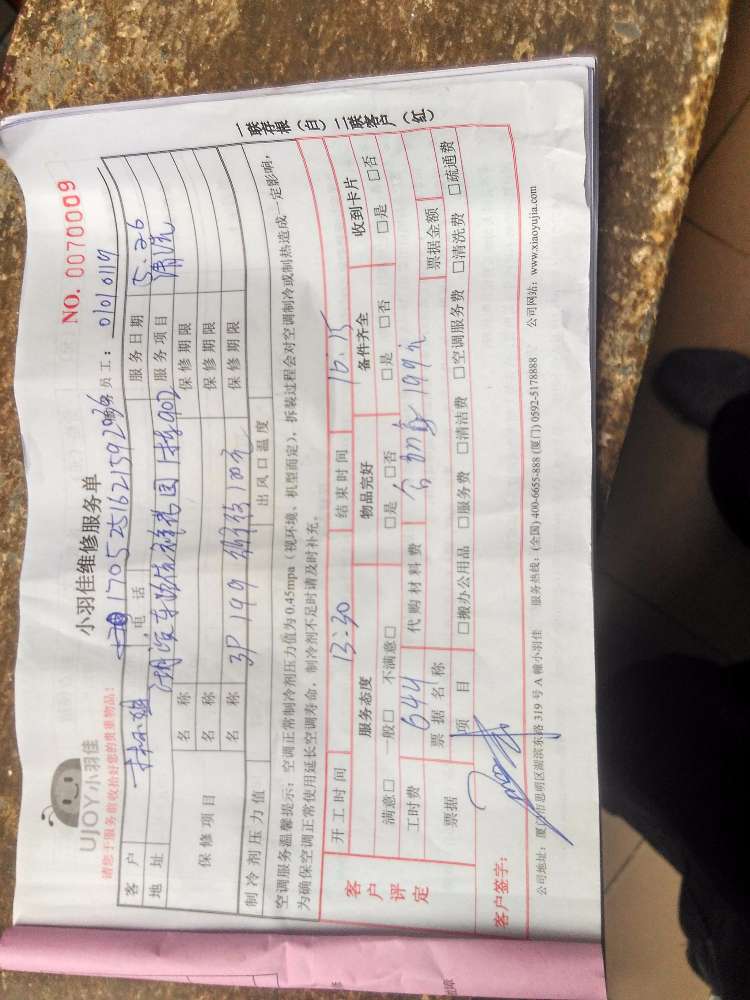 UJOY小羽佳
小羽佳维修服务单
NO. 0070009
请您于服务前收拾好您的贵重物品!
员工: 01010117
客户 林小姐 电话 服务日期 5.26
地址 服务项目 清洗
保修项目
名称 保修期限
名称 保修期限
名称 3P 199 保修期限
制冷剂压力值 出风口温度
空调服务温馨提示:空调正常制冷剂压力值为0.45mpa(视环境、机型而定),拆装过程会对空调制冷或制热造成一定影响,
为确保空调正常使用延长空调寿命,制冷剂不足时请及时补充。
客户评定
开工时间 13:30 结束时间 15:15
服务态度 物品完好 备件齐全 收到卡片
满意□ 一般□ 不满意□ □是 □否 □是 □否 □是 □否
工时费 644 代购材料费 199元
票据 票据名称 票据金额
项目 □搬办公用品 □服务费 □清洁费 □空调服务费 □清洗费 □疏通费
客户签字:
公司地址:厦门市思明区湖滨东路319号A幢小羽佳 服务热线:(全国)400-6655-888 (厦门)0592-5178888 公司网站:www.xiaoyujia.com
一联存根(白)二联客户(红)